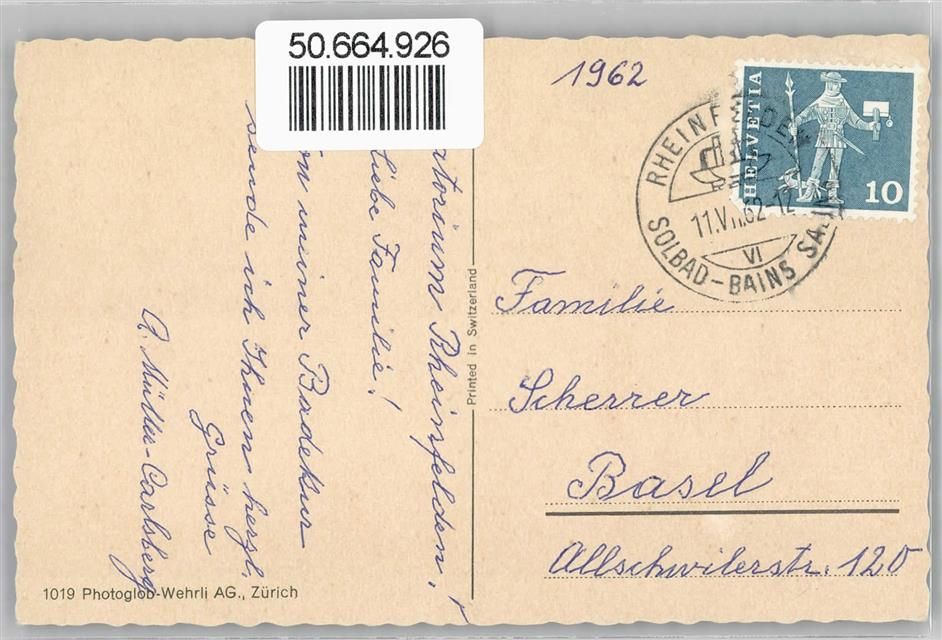 50.664.926
1962
HELVETIA
10
RHEINFELDEN
11.VII.62-12
VI
SOLBAD-BAINS SALINS
Familie
Scherrer
Basel
Allschwilerstr. 120
Printed in Switzerland
atorium Rheinfelden.
Liebe Familie!
on meiner Badekur
sende ich Ihnen herzl.
Grüsse
A. Müller-Carlsberg
1019 Photoglob-Wehrli AG., Zürich